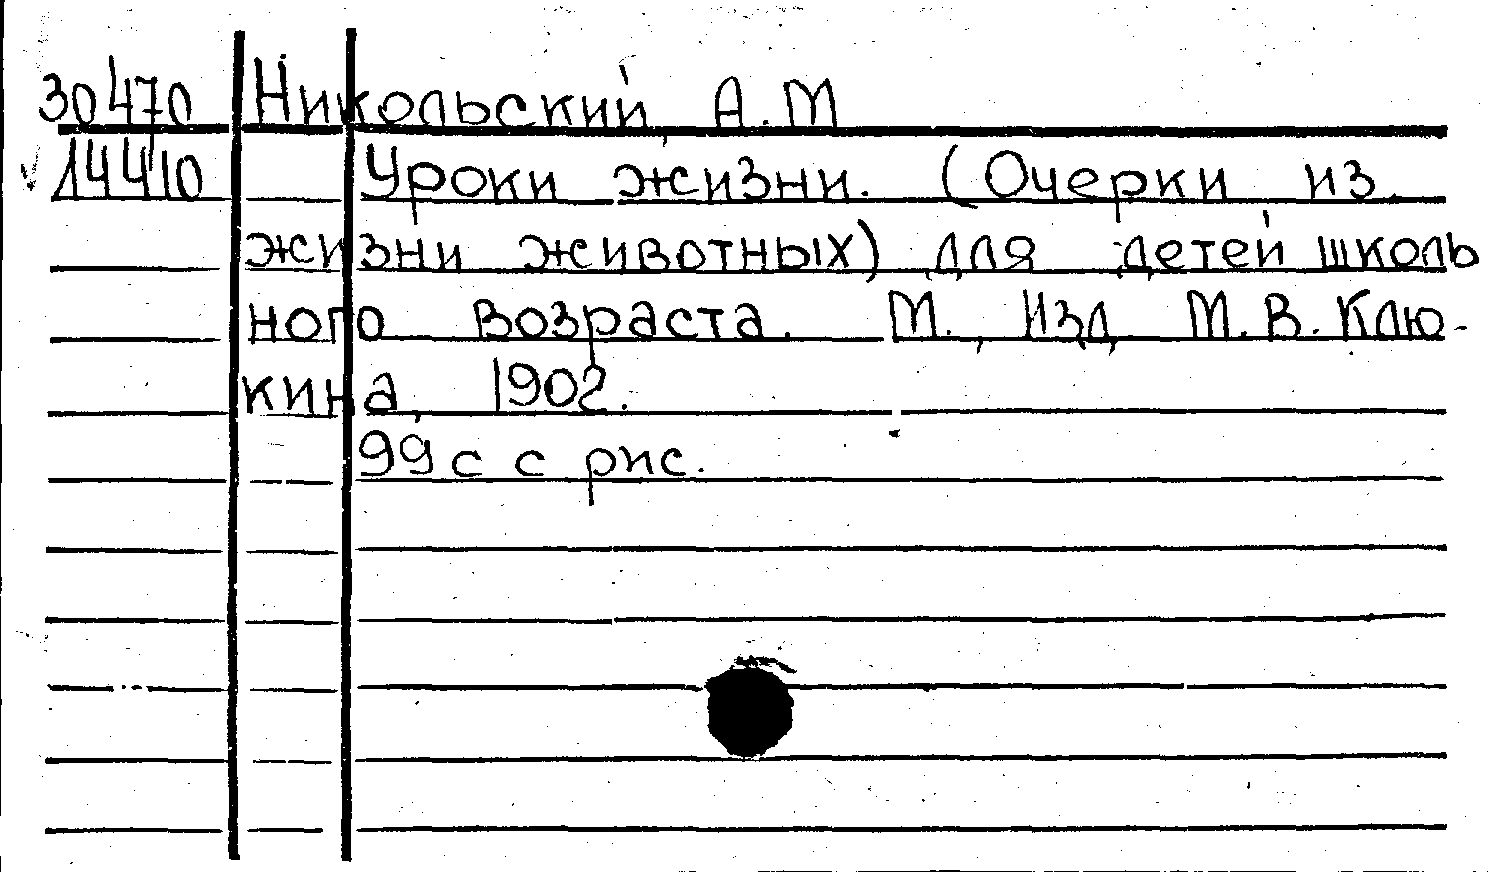 30470 Никольский, А.М
14410 Уроки жизни. (Очерки из
жизни животных) для детей школь
ного возраста. М., Изд. М.В. Клю-
кина, 1902.
99 с с рис.